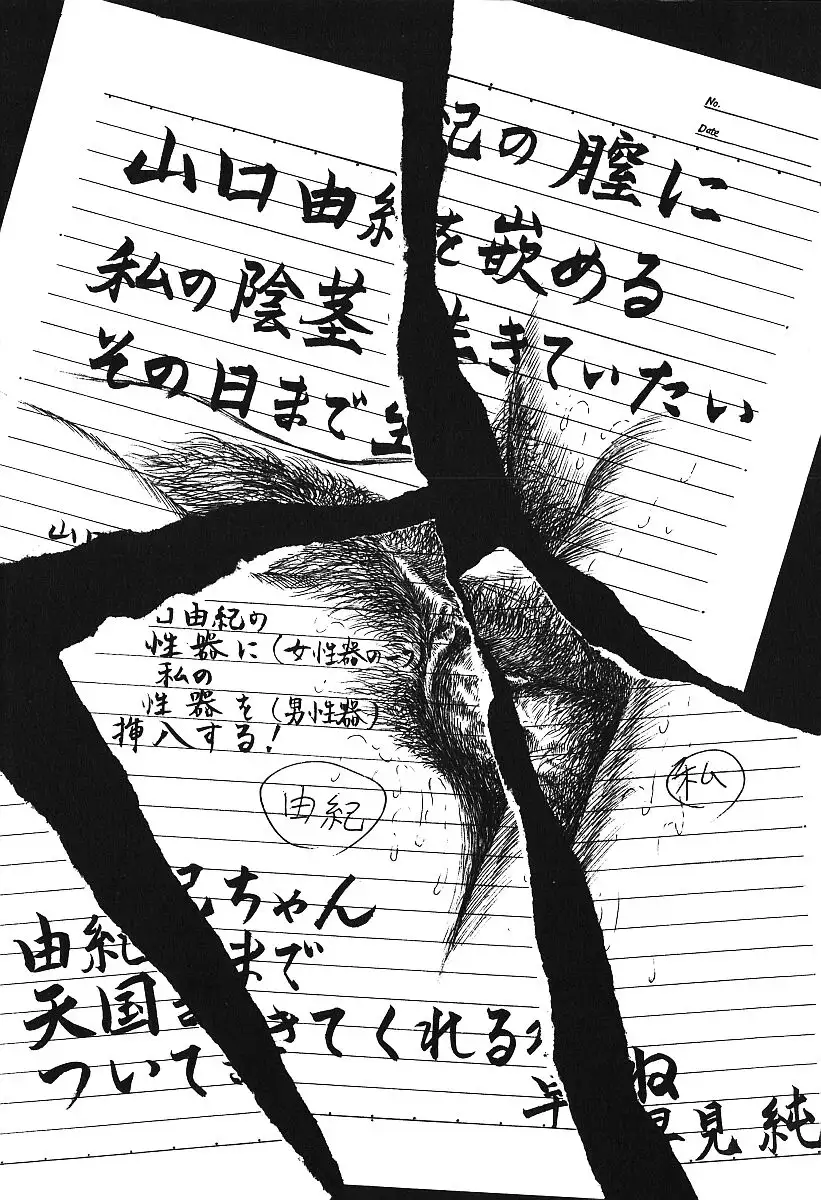 No.
Date
山口由紀の膣に
私の陰茎を嵌める
その日まで生きていたい
山口由紀の
性器に(女性器の一つ)
私の
性器を(男性器)
挿入する!
由紀
私
由紀ちゃん
天国まで
ついてきてくれるね
早見純